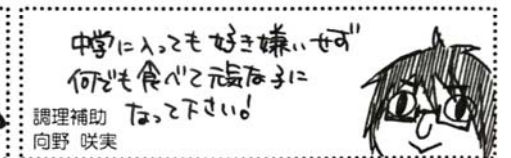 中学に入っても好き嫌いせず
何でも食べて元気な子に
なって下さい！
調理補助
向野 咲実